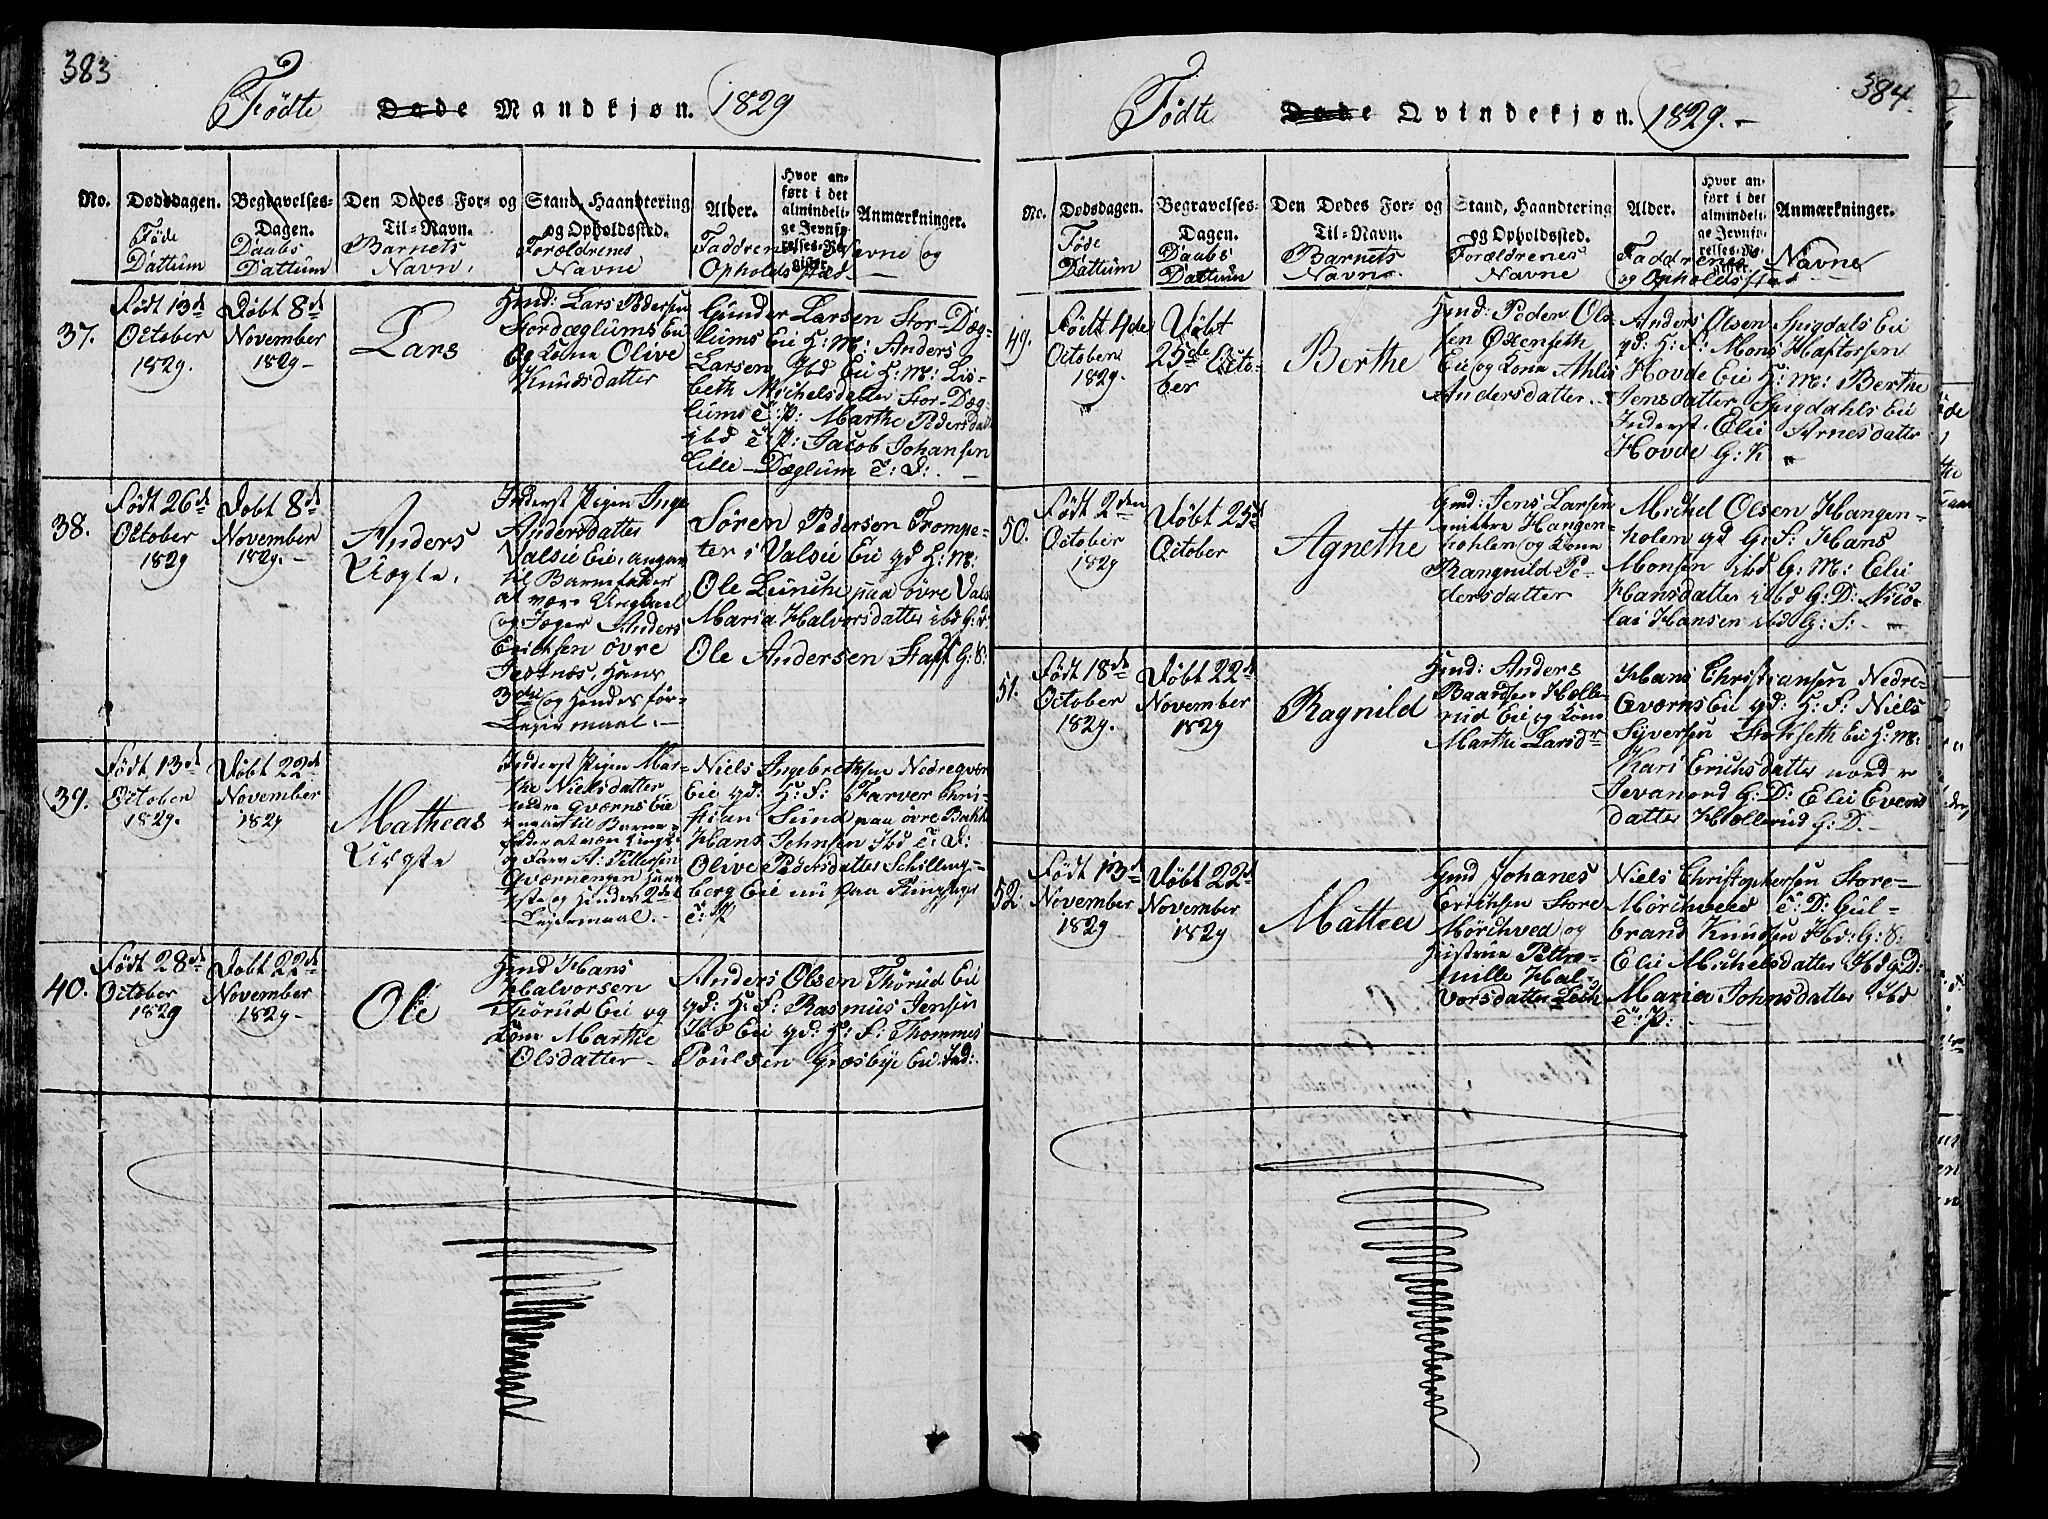 383
Födte Døde Mandkjøn. 1829
No.
Dødsdagen.
Föde
Dattum
Begravelses-
Dagen.
Daabs
Dattum
Den Dødes For- og
Til-Navn.
Barnets
Navn.
Stand, Haandtering
og Opholdssted.
Forældrenes
Navne
Alder.
Hvor an-
ført i det
almindeli-
ge Jevnfø-
relses-Re-
gister.
Anmærkninger.
Faddrenes Navne og
Opholds Stæd.
37.
Födt 13de
October
1829.
Döbt 8de
November
1829
Lars
Hmd: Lars Pedersen
Stordæglums Eie
og Kone Olive
Knudsdatter
Gunder Larsen Stor-Dæg-
lums Eie H: M: Anders
Larsen Ibd Eie H: M: Lis-
beth Michelsdatter Stor-Dæg-
lums T: P: Marthe Pedersdatt
ibd T: P: Jacob Johansen
Lille-Dæglum T: D:
38.
Födt 26de
October
1829
Döbt 8de
November
1829.
Anders
Uægte.
Inderst Pigen Inge
Andersdatter
Valsie Eie, angav
til Barnefader
at være Ungkarl
og Jæger Anders
Erichsen övre
Jestnæs, Hans
3die og Hendes för-
Leiermaal.
Sören Pedersen Trompe-
ter i Valsie Eie gd H: M:
Ole Lunche paa övre Vals
Maria Halvorsdatter ibd G:
Ole Andersen Staff G: S:
39.
Födt 13de
October
1829.
Döbt 22de
November
1829
Matheas
Uægte
Inderst Pigen Mar-
the Nielsdatter
nedre Qværns Eie
til Barne-
fader at være Ungk:
og Farv A: Pettersen
Qværnengen Hans
1ste og Hendes 2det
Leiermaal.
Niels Ingebrethsen Nedreqværn
Eie gd: H: F: Farver Chri-
stian Sund paa övre Bakke
Hans Johnsen Ibd T: D:
Olive Pedersdatter Schilling-
berg Eie nu paa Ringsager
T: P
40.
Födt 28de
October
1829
Döbt 22de
November
1829
Ole
Hmd Hans
Halvorsen
Thörud Eie og
Kone Marthe
Olsdatter
Anders Olsen Thörud Eie
gd: H: F: Rasmus Jensen
Ibd Eie gd: H: F: Thommes
Poulsen Græsbye Eie Ind:
384
Födte Døde Qvindekjøn. 1829.
No.
Dødsdagen.
Föde
Dattum
Begravelses-
Dagen.
Daabs
Dattum
Den Dødes For- og
Til-Navn.
Barnets
Navne.
Stand, Haandtering
og Opholdssted.
Forældrenes
Navne
Alder.
Hvor an-
ført i det
almindeli-
ge Jevnfø-
relses-Re-
gister.
Anmærkninger.
Faddrenes Navne
og Opholdsstæd
49.
Födt 4de
October
1829.
Döbt
25de Octo-
ber
Berthe
Hmd: Peder Ol-
sen Oxenseth
Eie og Kone Ahlis
Andersdatter.
Anders Olsen Spigdals Eie
gd: H: F: Mons Haftorsen
Hovde Eie H: M: Berthe
Jensdatter Spigdahls Eie
Inderst. Elie Arnesdatter
Hovde G: K
50.
Födt 2den
October
1829
Döbt 25de
October
Agnethe
Gmd: Jens Larsen
Hangen-
hohlen og Kone
Rangnild Pe-
dersdatter
Michel Olsen Hangen-
holen gd G: F: Hans
Monsen ibd G: M: Elie
Hansdatter ibd G: D: Nico-
lai Hansen ibd G: S:
51.
Födt 18de
October
1829.
Döbt 22de
November
1829
Ragnild
Hmd: Anders
Baardsen Hølle-
rud Eie og Kone
Marthe Larsdr
Hans Christiansen Nedre-
Qværns Eie gd: H: F: Niels
Syversen Stohseth Eie H: M:
Kari Erichsdatter nordre
Jevanord G: D: Elie Evens
datter Høllerud G: D.
52.
Födt 13de
November
1829
Döbt 22de
November
1829
Mathea
Gmd Johanes
Erichsen Store
Mörchved og
Hustrue Petro-
nille Hal-
vorsdatter Lech
Niels Christophersen Store-
Mörchveed T: D: Gul-
brand Knudsen Ibd: G: S:
Elie Michelsdatter Ibd G: D:
Maria Johnsdatter Ibd
T: P: